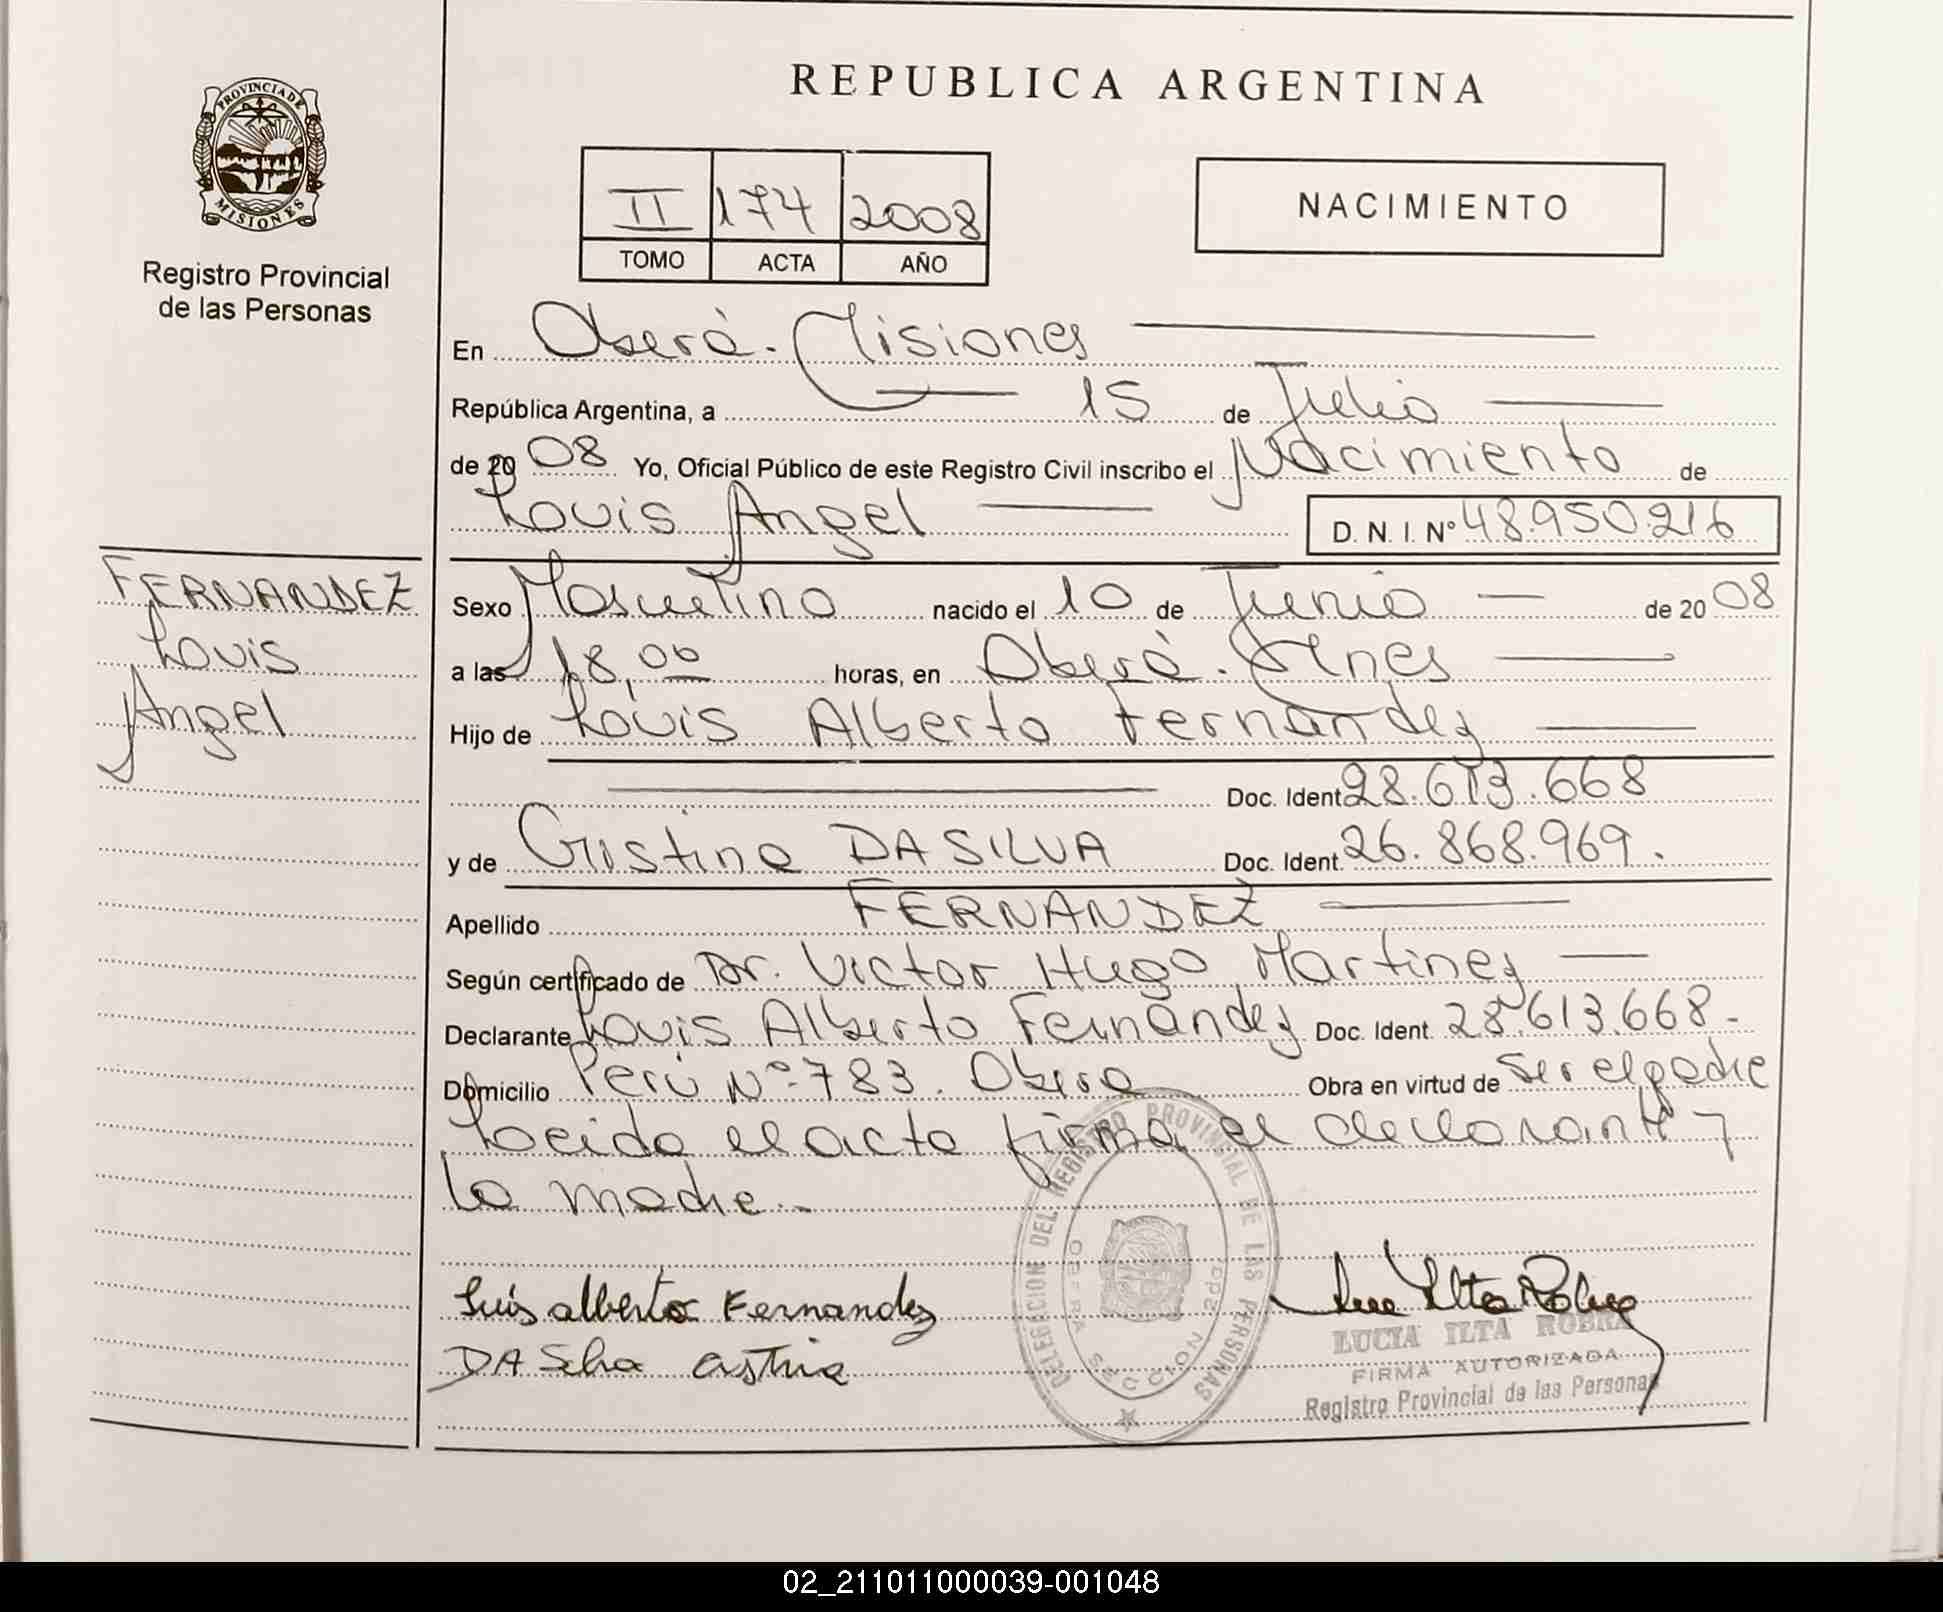 REPUBLICA ARGENTINA
PROVINCIA DE
MISIONES
Registro Provincial
de las Personas
II 174 2008
TOMO ACTA AÑO
NACIMIENTO
En Oberá - Misiones
República Argentina, a 15 de Julio
de 20 08 Yo, Oficial Público de este Registro Civil inscribo el Nacimiento de
Louis Angel D. N. I. Nº 48.950.216
FERNANDEZ
Louis
Angel
Sexo Masculino nacido el 10 de Junio de 20 08
a las 18,00 horas, en Oberá - Mnes
Hijo de Louis Alberto Fernández
Doc. Ident. 28.613.668
y de Cristina DA SILVA Doc. Ident. 26.868.969.
Apellido FERNANDEZ
Según certificado de Dr. Victor Hugo Martinez
Declarante Louis Alberto Fernández Doc. Ident. 28.613.668-
Domicilio Perú Nº 783. Oberá Obra en virtud de ser el padre
Leida el acta firma el declarante y
la madre.-
Luis alberto Fernandez
DA Silva
DELEGACION DEL REGISTRO PROVINCIAL DE LAS PERSONAS
OBERA 2da SECCION
LUCIA ILTA ROBRA
FIRMA AUTORIZADA
Registro Provincial de las Personas
02_211011000039-001048